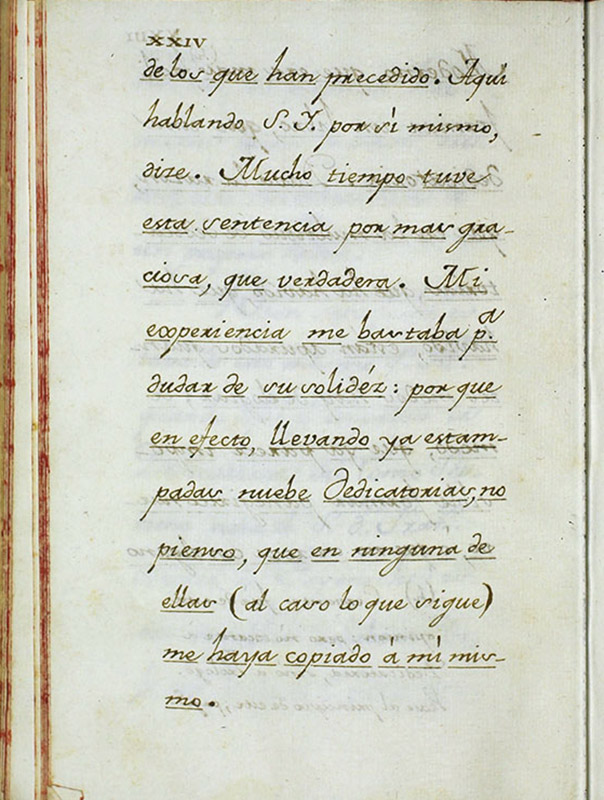 XXIV
de los que han precedido. Aqui
hablando S. I. por sí mismo,
dize. Mucho tiempo tuve
esta sentencia por mas gra-
ciosa, que verdadera. Mi
experiencia me bastaba p.ª
dudar de su solidéz: por que
en efecto, llevando ya estam-
padas nuebe Dedicatorias, no
pienso, que en ninguna de
ellas (al caso lo que sigue)
me haya copiado á mí mis-
mo.